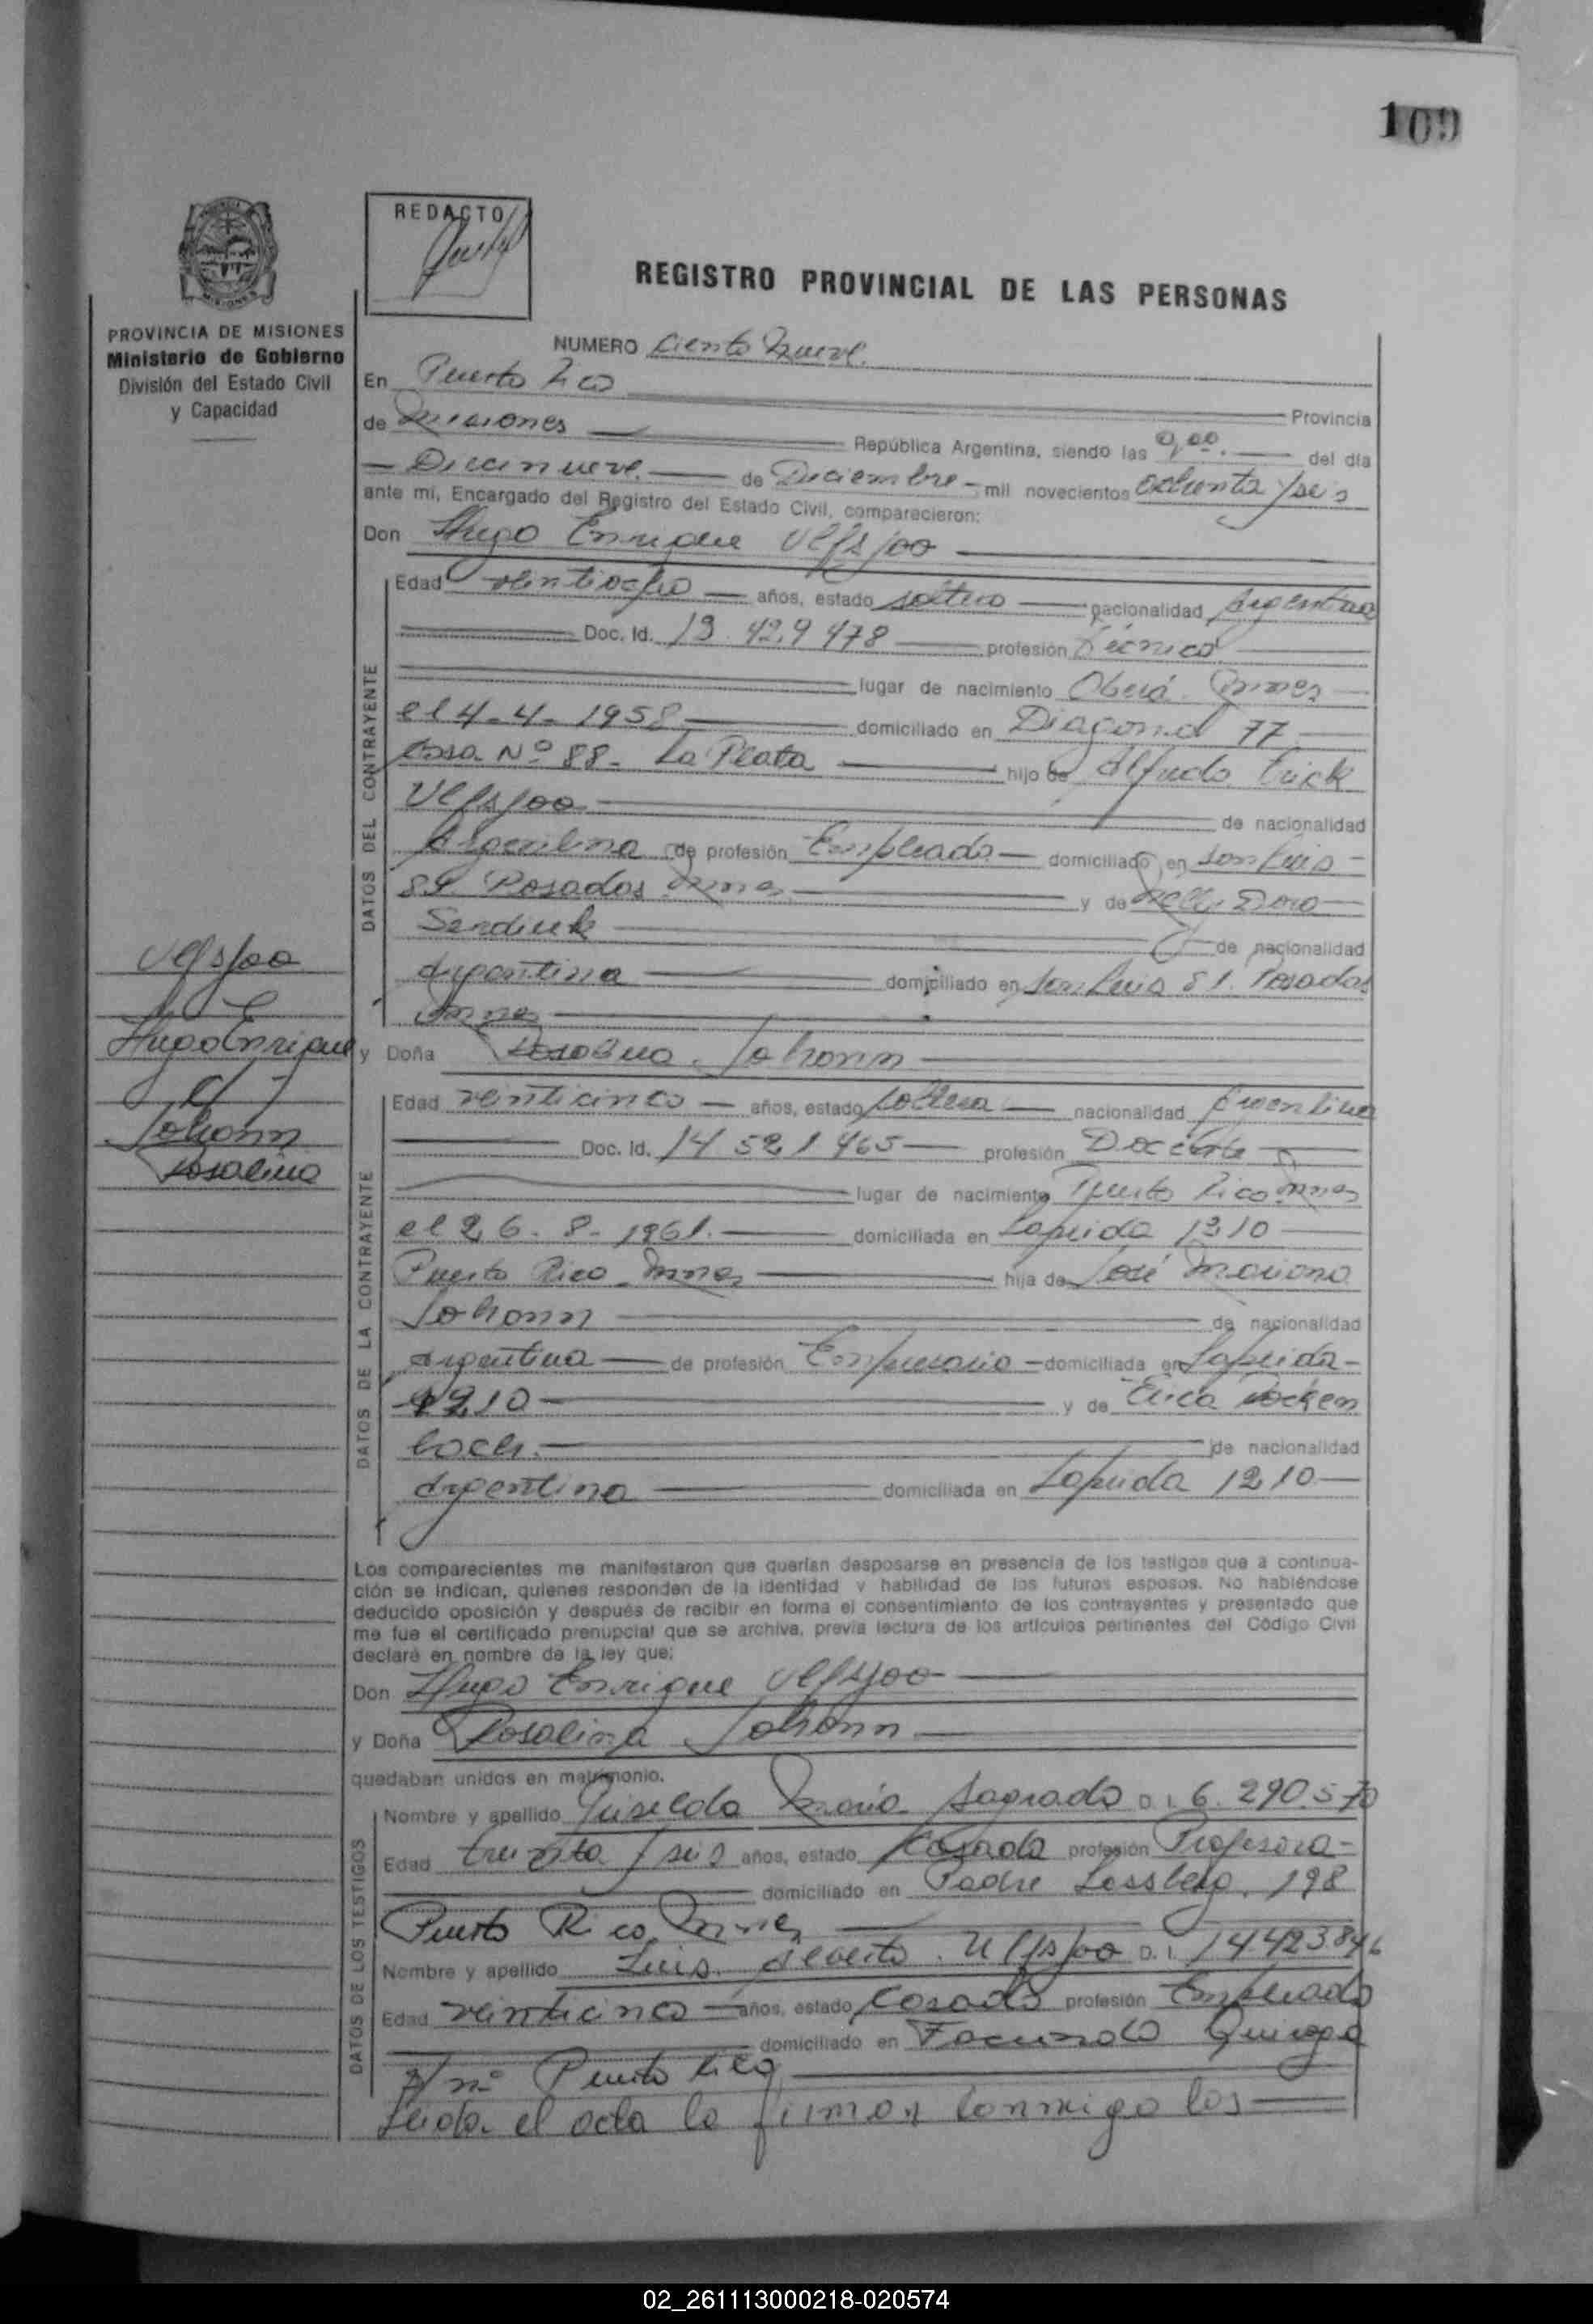 109
REDACTO
REGISTRO PROVINCIAL DE LAS PERSONAS
PROVINCIA DE MISIONES
Ministerio de Gobierno
División del Estado Civil
y Capacidad
NUMERO Ciento Nueve
En Puerto Rico Provincia
de Misiones República Argentina, siendo las 9,00. del día
Diecinueve de Diciembre mil novecientos ochenta y seis
ante mí, Encargado del Registro del Estado Civil, comparecieron:
Don Hugo Enrique Ulfsjoo
DATOS DEL CONTRAYENTE
Edad veintiocho años, estado soltero nacionalidad Argentina
Doc. Id. 13.429.478 profesión Técnico
lugar de nacimiento Oberá Mnes
el 4-4-1958 domiciliado en Diagonal 77
Casa Nº 88- La Plata hijo de Alfredo Erick
Ulfsjoo de nacionalidad
Argentina de profesión Empleado domiciliado en San Luis
81 Posadas Mnes y de Nelly Dora
Sendiuk de nacionalidad
Argentina domiciliado en San Luis 81. Posadas
Mnes
Ulfsjoo
Hugo Enrique
c/
Johann
Rosalina
y Doña Rosalina Johann
DATOS DE LA CONTRAYENTE
Edad veinticinco años, estado soltera nacionalidad Argentina
Doc. Id. 14 521 465 profesión Docente
lugar de nacimiento Puerto Rico Mnes
el 26-8-1961. domiciliada en Laprida 1210
Puerto Rico Mnes hija de José Mariano
Johann de nacionalidad
Argentina de profesión Empresario domiciliada en Laprida
1210 y de Erica Rocken
bach. de nacionalidad
Argentina domiciliada en Laprida 1210
Los comparecientes me manifestaron que querían desposarse en presencia de los testigos que a continua-
ción se indican, quienes responden de la identidad y habilidad de los futuros esposos. No habiéndose
deducido oposición y después de recibir en forma el consentimiento de los contrayentes y presentado que
me fue el certificado prenupcial que se archiva, previa lectura de los artículos pertinentes del Código Civil
declaré en nombre de la ley que:
Don Hugo Enrique Ulfsjoo
y Doña Rosalina Johann
quedaban unidos en matrimonio.
DATOS DE LOS TESTIGOS
Nombre y apellido Griselda María Sagrado D. I. 6.290.570
Edad treinta y seis años, estado Casada profesión Profesora
domiciliado en Padre Lassberg. 198
Puerto Rico Mnes
Nombre y apellido Luis Alberto Ulfsjoo D. I. 14.423846
Edad veinticinco años, estado Casado profesión Empleado
domiciliado en Facundo Quiroga
s/nº Puerto Rico
Leída el acta la firman conmigo los
02_261113000218-020574